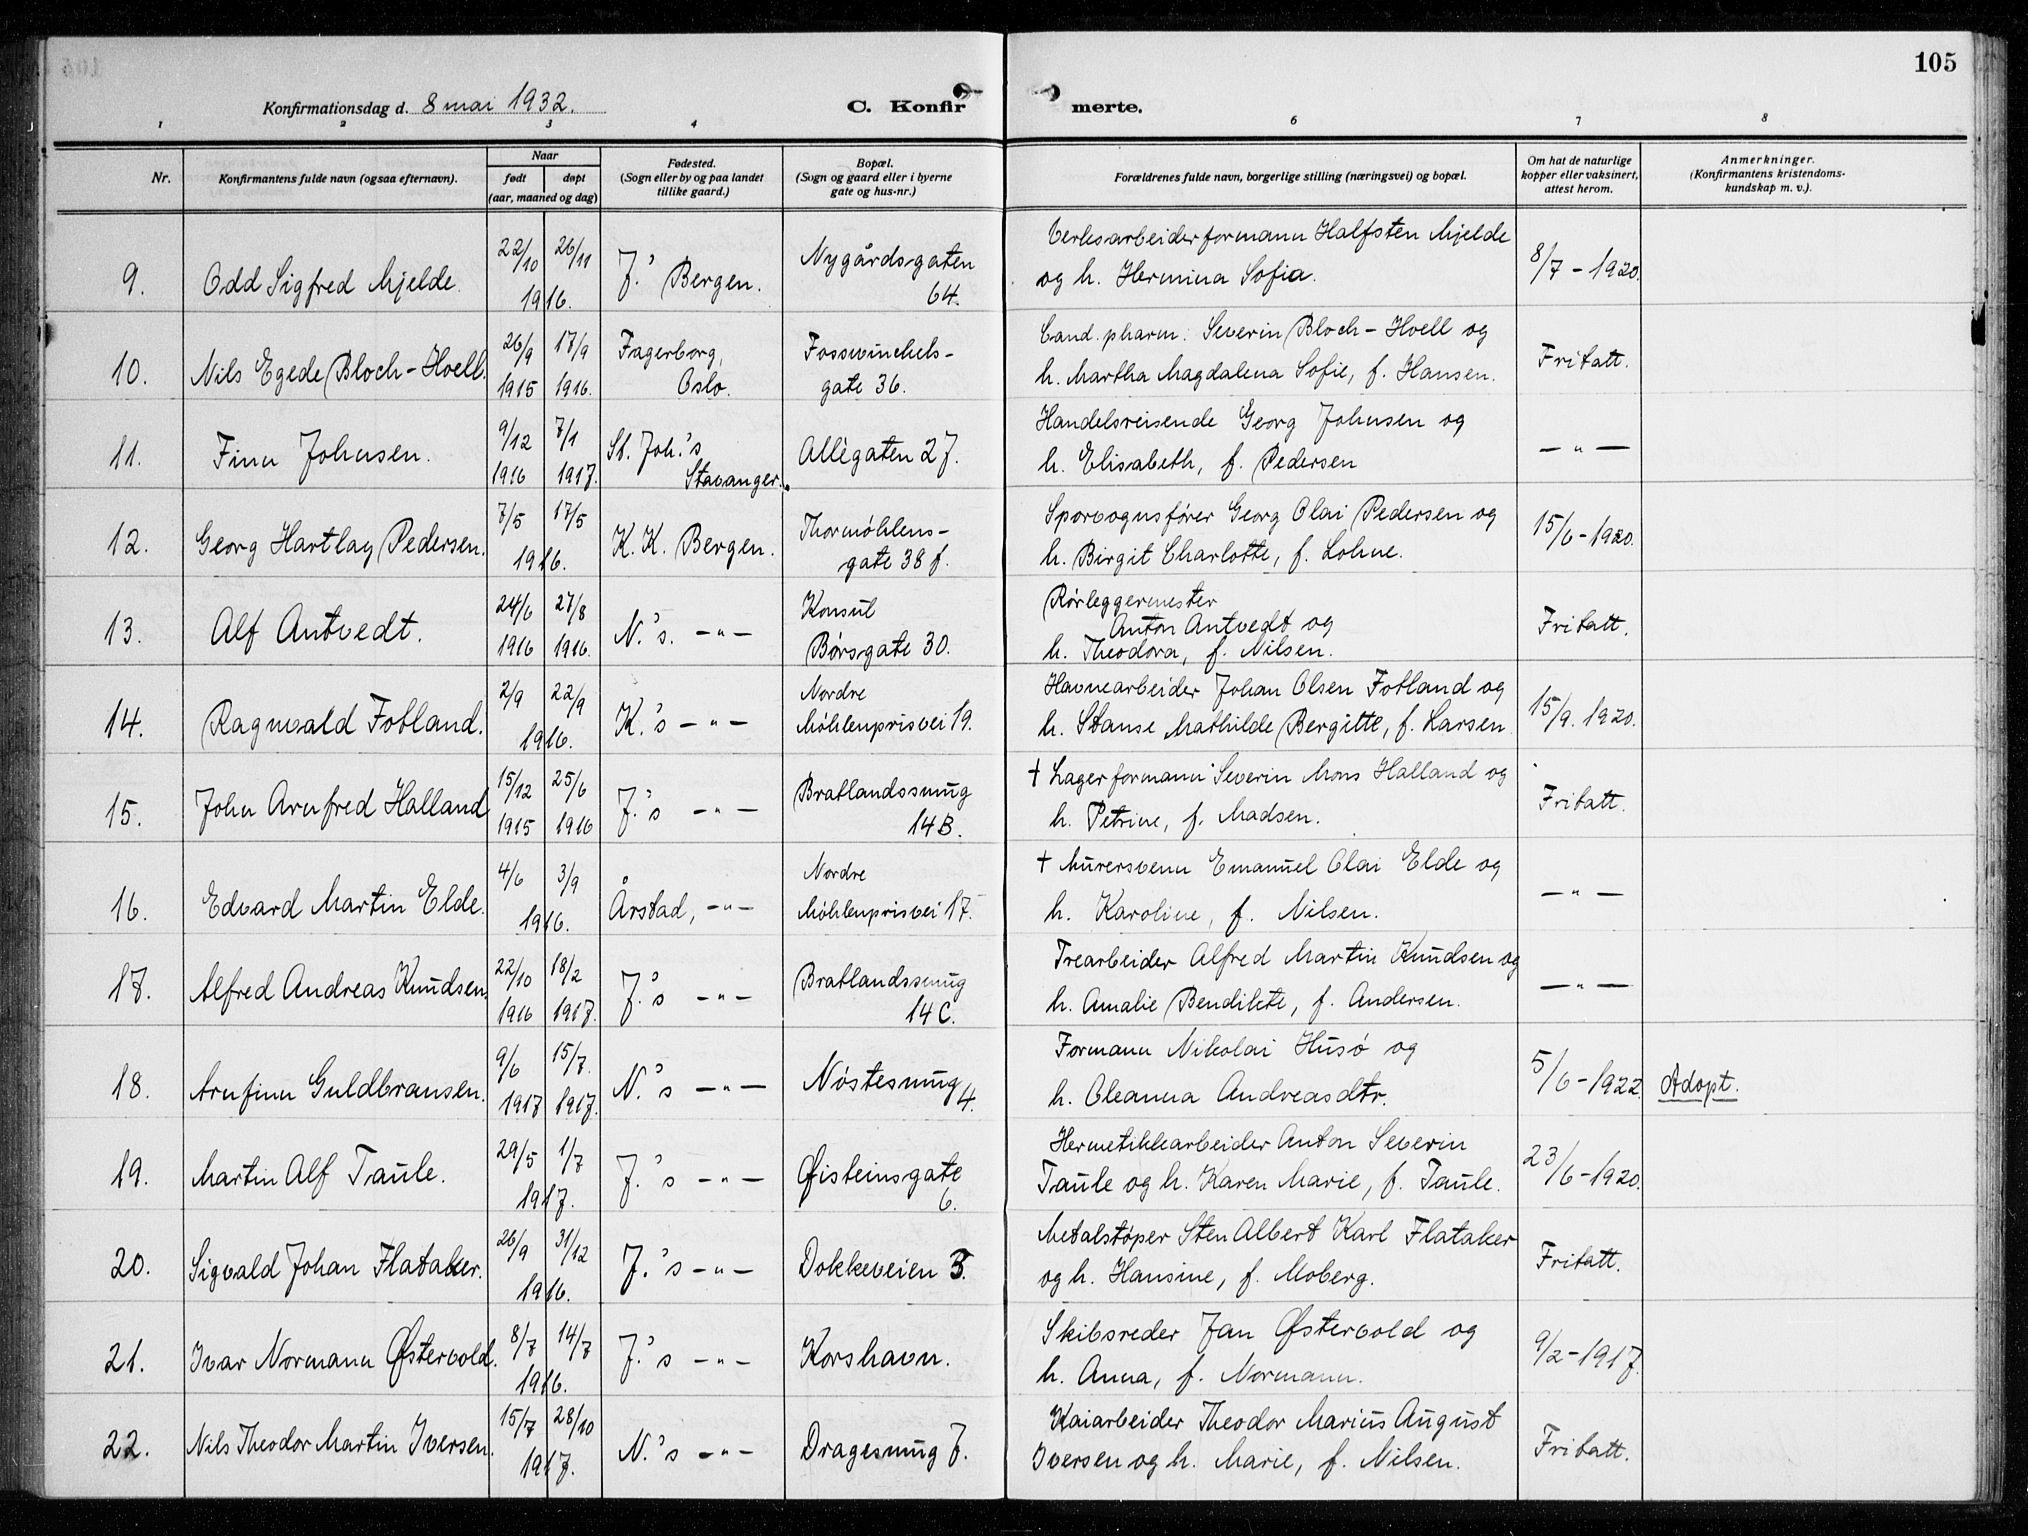 105
Konfirmationsdag d. 8 mai 1932.
C. Konfir merte.
1 2 3 4 6 7 8
Nr.
Konfirmantens fulde navn (ogsaa efternavn).
Naar
født døpt
(aar, maaned og dag)
Fødested.
(Sogn eller by og paa landet
tillike gaard.)
Bopæl.
(Sogn og gaard eller i byerne
gate og hus-nr.)
Forældrenes fulde navn, borgerlige stilling (næringsvei) og bopæl.
Om hat de naturlige
kopper eller vaksinert,
attest herom.
Anmerkninger.
(Konfirmantens kristendoms-
kundskap m. v.).
9. Odd Sigfred Mjelde. 22/10 26/11 1916. J.' Bergen. Nygårdsgaten
64.
Verksarbeiderformann Halfsten Mjelde
og h. Hermina Sofia.
8/7 - 1920.
10. Nils Egede Bloch-Hoell. 26/9 1915 17/9 1916. Fagerborg,
Oslo.
Fosswinckels-
gate 36.
Cand. pharm. Severin Bloch-Hoell og
h. Martha Magdalena Sofie, f. Hansen.
Fritatt.
11. Finn Johnsen. 9/12 1916 7/1 1917. St. Joh.'s
Stavanger.
Allègaten 27.
Handelsreisende Georg Johnsen og
h. Elisabeth, f. Pedersen
— " —
12. Georg Hartlay Pedersen. 7/5 17/5 1916. K. K. Bergen. Thormøhlens-
gate 38 f.
Sporvognsfører Georg Olai Pedersen og
h. Birgit Charlotte, f. Lohne.
15/6 - 1920.
13. Alf Antvedt. 24/6 1916 27/8 1916. N.'s. — " — Konsul
Børsgate 30.
Rørleggermester
Anton Antvedt og
h. Theodora, f. Nilsen.
Fritatt.
14. Ragnvald Fotland. 2/9 22/9 1916. K.'s — " — Nordre
Møhlenprisvei 19.
Havnearbeider Johan Olsen Fotland og
h. Stanse Mathilde Bergitte, f. Larsen
15/9. 1920.
15. John Arnfred Halland 15/12 1915 25/6 1916 J.'s — " — Bratlandssmug
14 B.
† Lagerformann Severin Mons Halland og
h. Petrine, f. Madsen.
Fritatt.
16. Edvard Martin Elde. 4/6 3/9 1916. Årstad, — " — Nordre
Møhlenprisvei 17.
† Murersvenn Emanuel Olai Elde og
h. Karoline, f. Nilsen.
— " —
17. Alfred Andreas Knudsen. 22/10 1916 18/2 1917. J.'s — " — Bratlandssmug
14 C.
Trearbeider Alfred Martin Knudsen og
h. Amalie Bendikte, f. Andersen.
— " —
18. Arnfinn Guldbransen. 9/6 1917 15/7. 1917. N.'s — " — Nøstesmug
4.
Formann Nikolai Husø og
h. Oleanna Andreasdtr.
5/6 - 1922. Adopt.
19. Martin Alf Taule. 29/5 1/7 1917. J.'s — " — Øisteinsgate
6.
Hermetikkarbeider Anton Severin
Taule og h. Karen Marie, f. Taule.
23/6 - 1920.
20. Sigvald Johan Flataker. 26/9 31/12 1916. J.'s — " — Dokkeveien 3.
Metalstøper Sten Albert Karl Flataker
og h. Hansine, f. Moberg.
Fritatt.
21. Ivar Normann Østervold. 8/7 14/7 1916. J.'s — " — Korshavn.
Skibsreder Jan Østervold og
h. Anna, f. Normann.
9/2 - 1917.
22. Nils Theodor Martin Iversen. 15/7 28/10 1917. N.'s — " — Dragesmug 7.
Kaiarbeider Theodor Marius August
Iversen og h. Marie, f. Nilsen.
Fritatt.